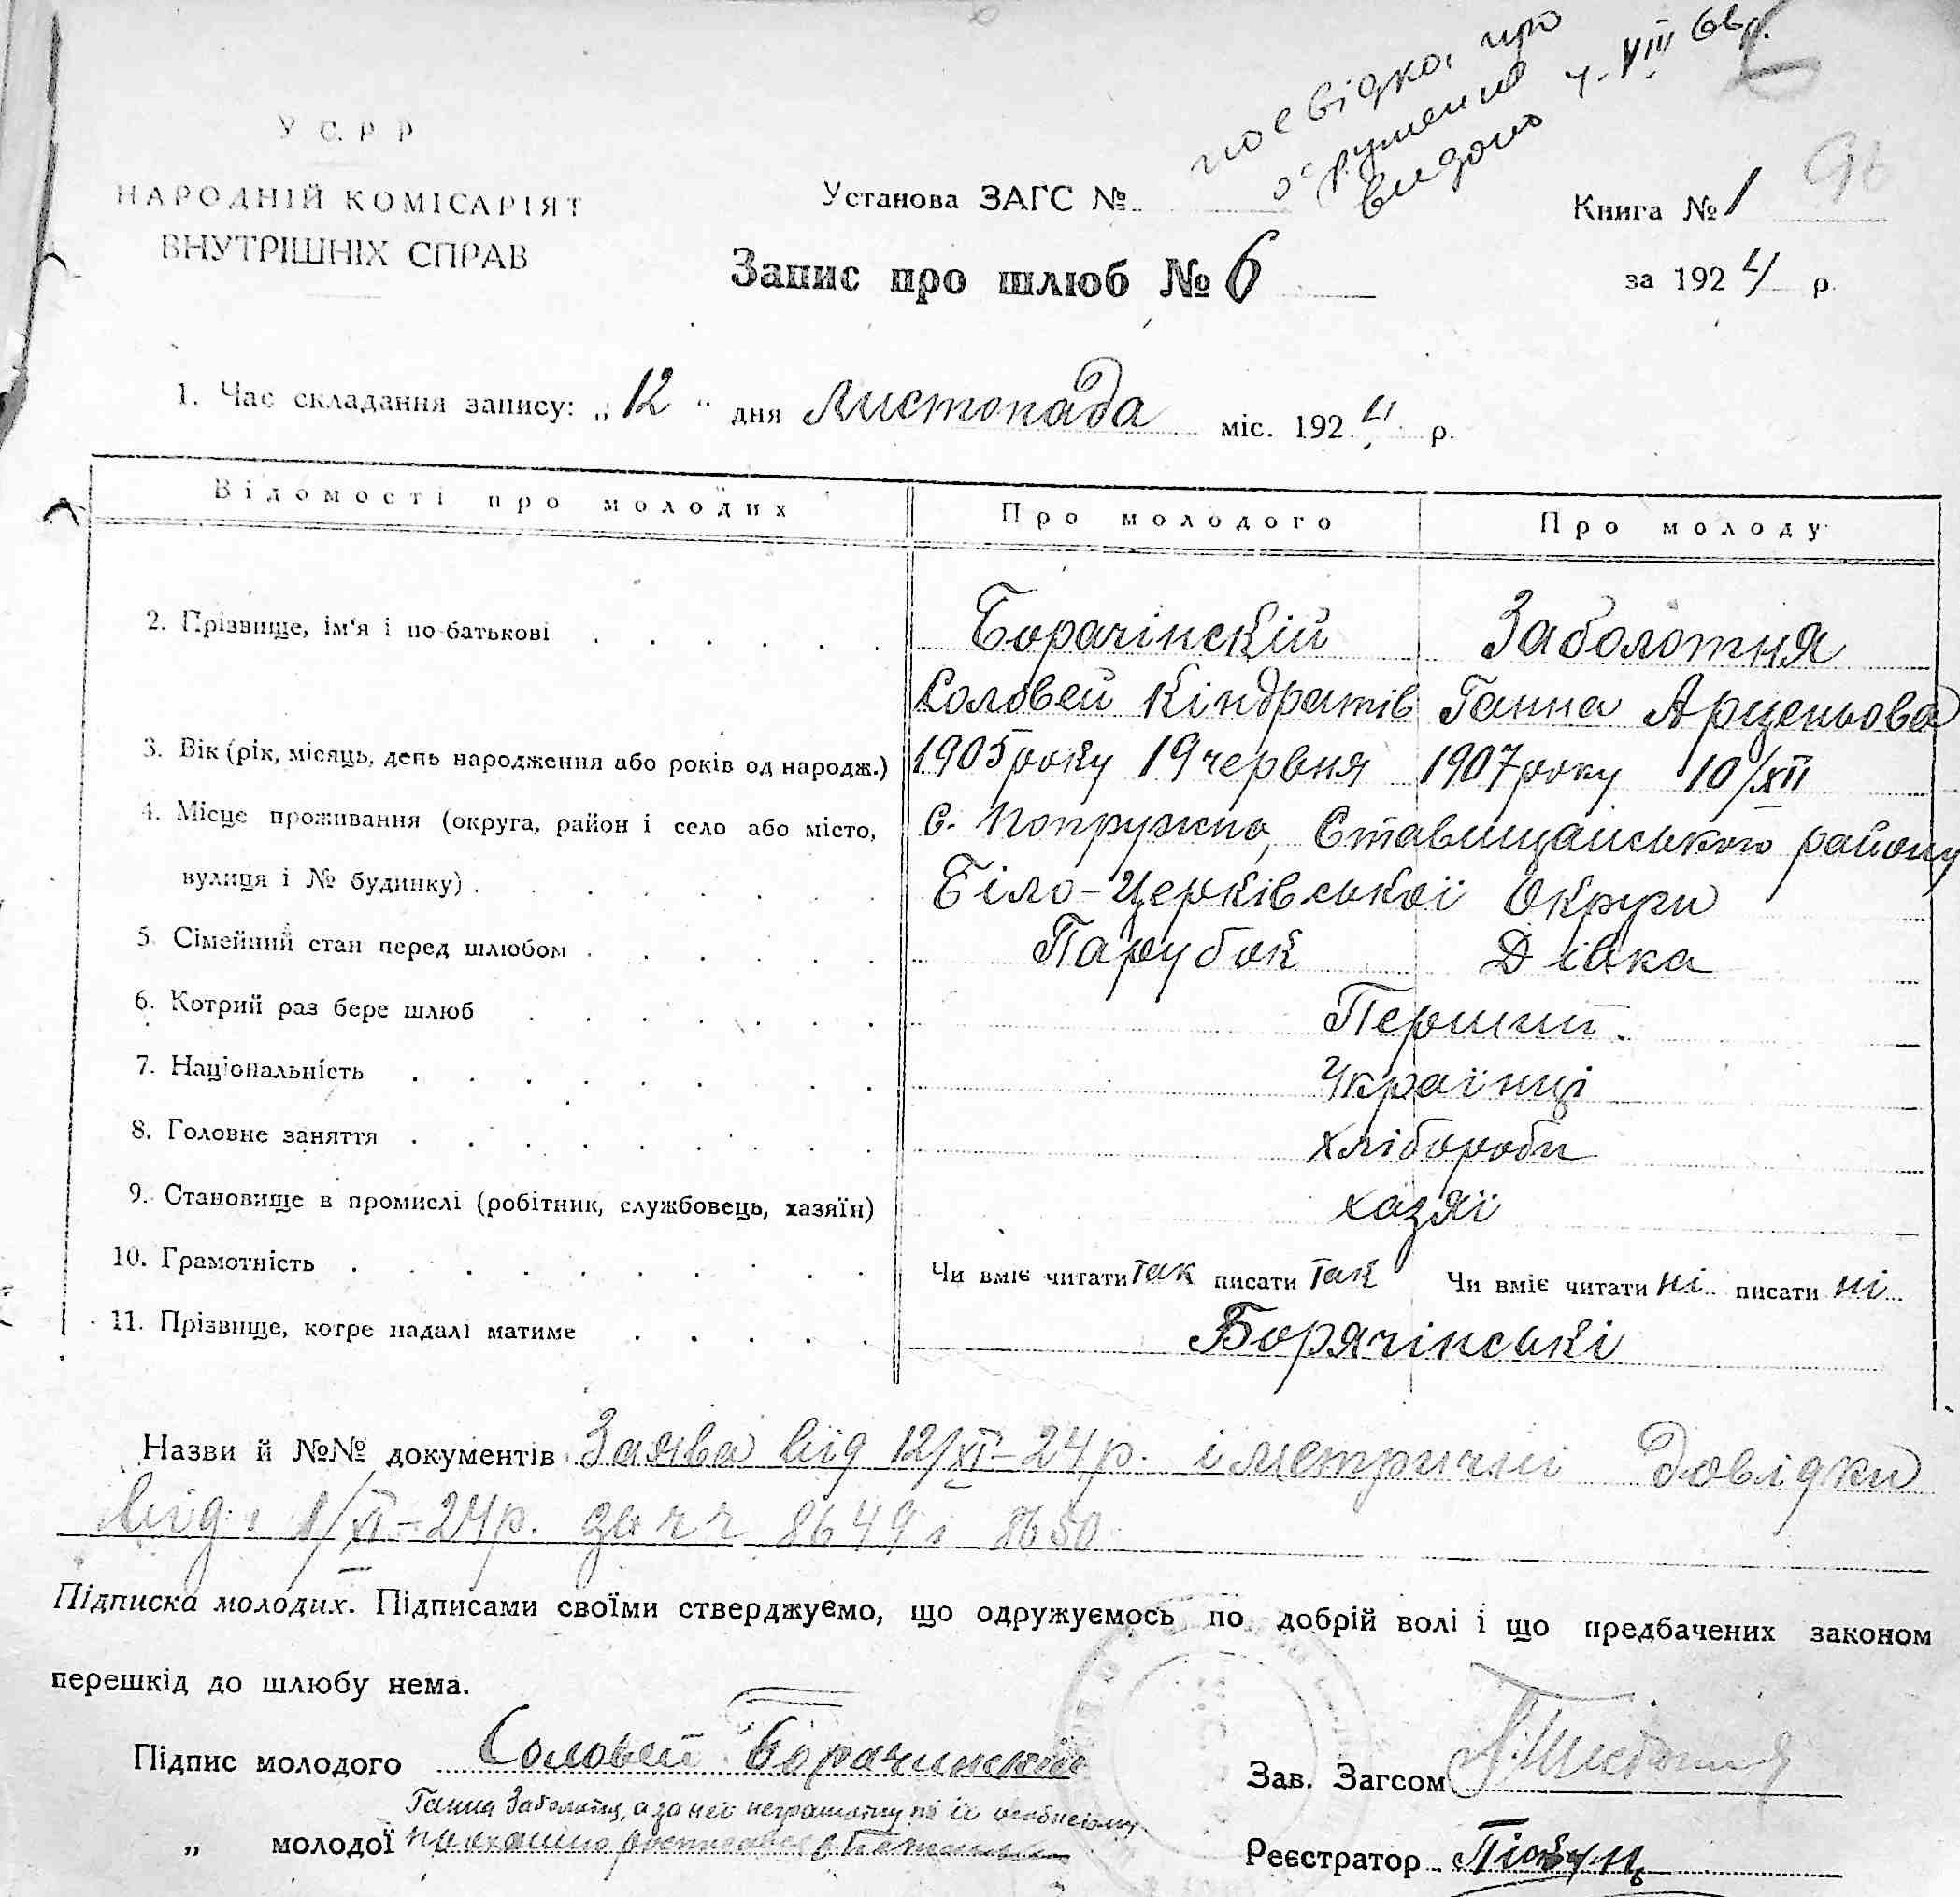 У С. Р Р
НАРОДНІЙ КОМІСАРІЯТ
ВНУТРІШНІХ СПРАВ
про
видано 4. VIII 66р.
Установа ЗАГС №
Книга № 1
98
Запис про шлюб № 6
за 1924 р.
1. Час складання запису: „12" дня Листопада міс. 1924 р.
Відомості про молодих Про молодого Про молоду
2. Прізвище, ім'я і по-батькові Борачінскій Заболотня
Соловей Кіндратів Ганна Арценьова
3. Вік (рік, місяць, день народження або років од народж.) 1905 року 19 червня 1907 року 10/XII
4. Місце проживання (округа, район і село або місто, с. Попружна, Ставищанського району
вулиця і № будинку) Біло-Церківської Округи
5. Сімейний стан перед шлюбом Парубок Дівка
6. Котрий раз бере шлюб Перший
7. Національність Українці
8. Головне заняття хлібороби
9. Становище в промислі (робітник, службовець, хазяїн) хазяї
10. Грамотність Чи вміє читати так писати так Чи вміє читати ні писати ні
11. Прізвище, котре надалі матиме Борячінські
Назви й №№ документів Заява від 12/XI-24р. і метричні довідки
від 1/XI-24р. за чч 8649 і 8650
Підписка молодих. Підписами своїми стверджуємо, що одружуємось по добрій волі і що предбачених законом
перешкід до шлюбу нема.
Підпис молодого Соловей Борачинский
Зав. Загсом
Ганна Заболотня, а за неї неграмотну по її особистому
„ молодої проханню росписався
Реєстратор